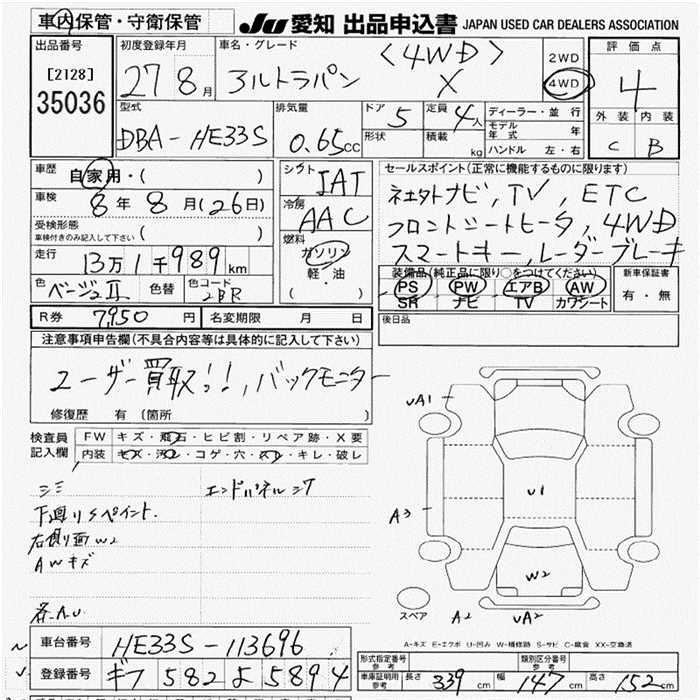 車内保管・守衛保管
JU 愛知 出品申込書 JAPAN USED CAR DEALERS ASSOCIATION
出品番号
[2128]
35036
初度登録年月
27 8月
車名・グレード
アルトラパン <4WD> X
2WD
4WD
評価点
4
外装 内装
C B
型式
DBA-HE33S
排気量
0.65CC
ドア 5
形状
定員 4人
積載 kg
ディーラー・並行
モデル年式 年
ハンドル 左・右
車歴
自家用・( )
車検
8年8月(26日)
受検形態
車検付きのみ記入して下さい ( )
走行
13万1千989km
色 ベージュII 色替 色コード 2BR
シフト IAT
冷房 AAC
燃料
ガソリン
軽・油
( )
セールスポイント(正常に機能するものに限ります)
ネエタトナビ, TV, ETC
フロントシートヒータ, 4WD
スマートキー, レーダーブレーキ
装備品(純正品に限り○をつけてください)
PS PW エアB AW
SR ナビ TV カワシート
新車保証書
有・無
R券 7950円 名変期限 月 日
後日品
注意事項申告欄(不具合内容等は具体的に記入して下さい)
ユーザー買取!!, バックモニター
修復歴 有 (箇所 )
検査員記入欄
FW キズ・飛石・ヒビ割・リペア跡・X要
内装 キズ・汚レ・コゲ・穴・スレ・キレ・破レ
シミ
エンドパネルシT
下廻りSペイント.
右側面W2
AWキズ
各A.U.
UA1
A3
U1
W2
A2
UA2
スペア
A-キズ E-エクボ U-凹み W-補修跡 S-サビ C-腐食 XX-交換済
車台番号 HE33S-113696
登録番号 ギフ 582 よ 5894
形式指定番号 参考
類別区分番号 参考
車庫証明用参考 長さ 339cm 幅 147cm 高さ 152cm